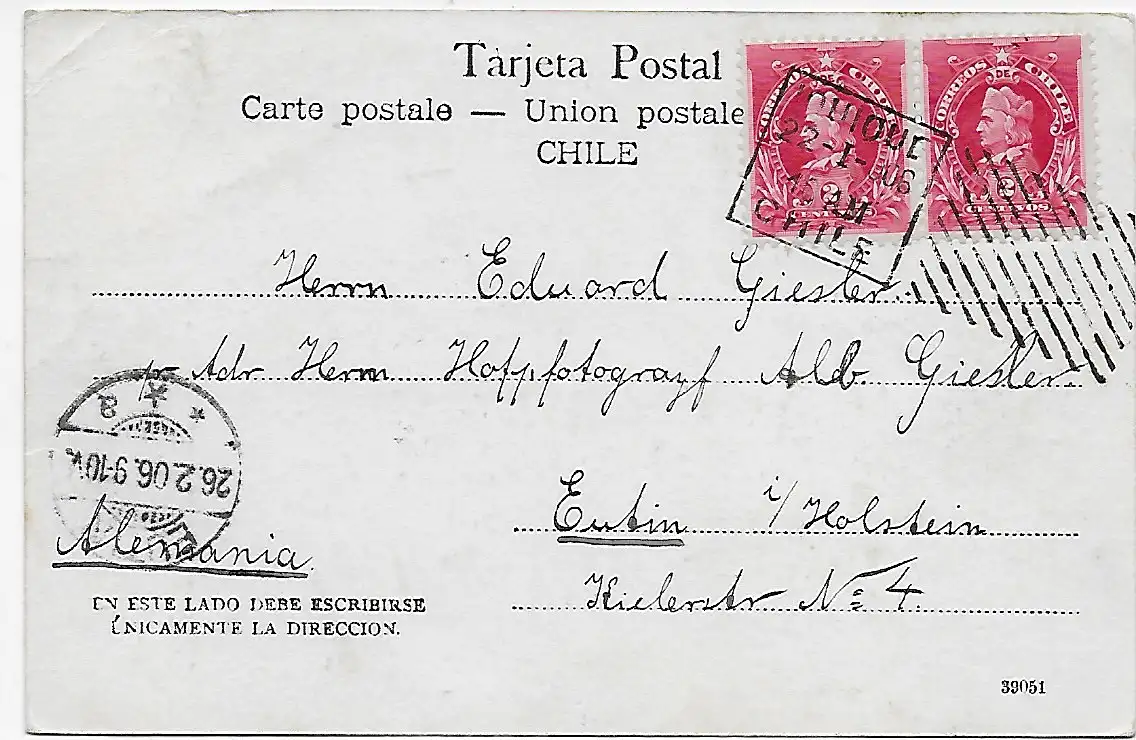 Tarjeta Postal
Carte postale — Union postale
CHILE
CORREOS DE CHILE
2
CENTAVOS
CORREOS DE CHILE
2
CENTAVOS
IQUIQUE
22-I-06
AM
CHILE
Herrn Eduard Giesler.
pr Adr Herrn Hoffotograf Alb. Giesler.
* * 8
26.2.06.9-10V.
Eutin i/Holstein
Alemania.
Kielerstr No 4.
EN ESTE LADO DEBE ESCRIBIRSE
ÚNICAMENTE LA DIRECCION.
39051